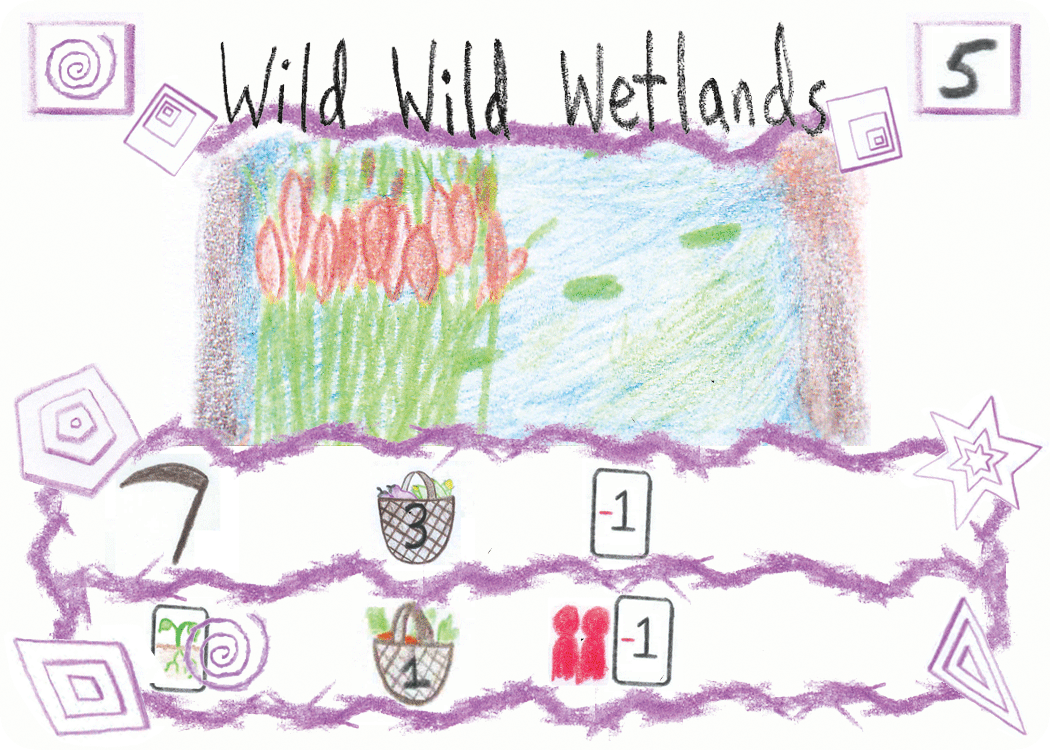 Wild Wild Wetlands
5
3
-1
1
-1